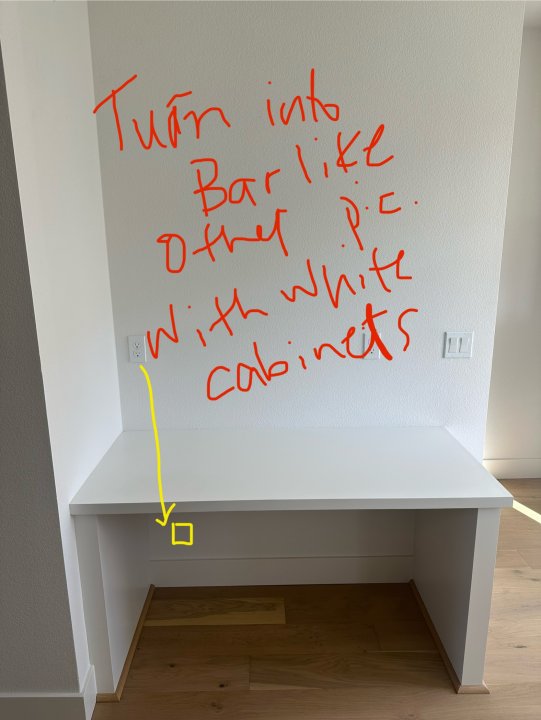 Turn into
Bar like
other pic.
with white
cabinets